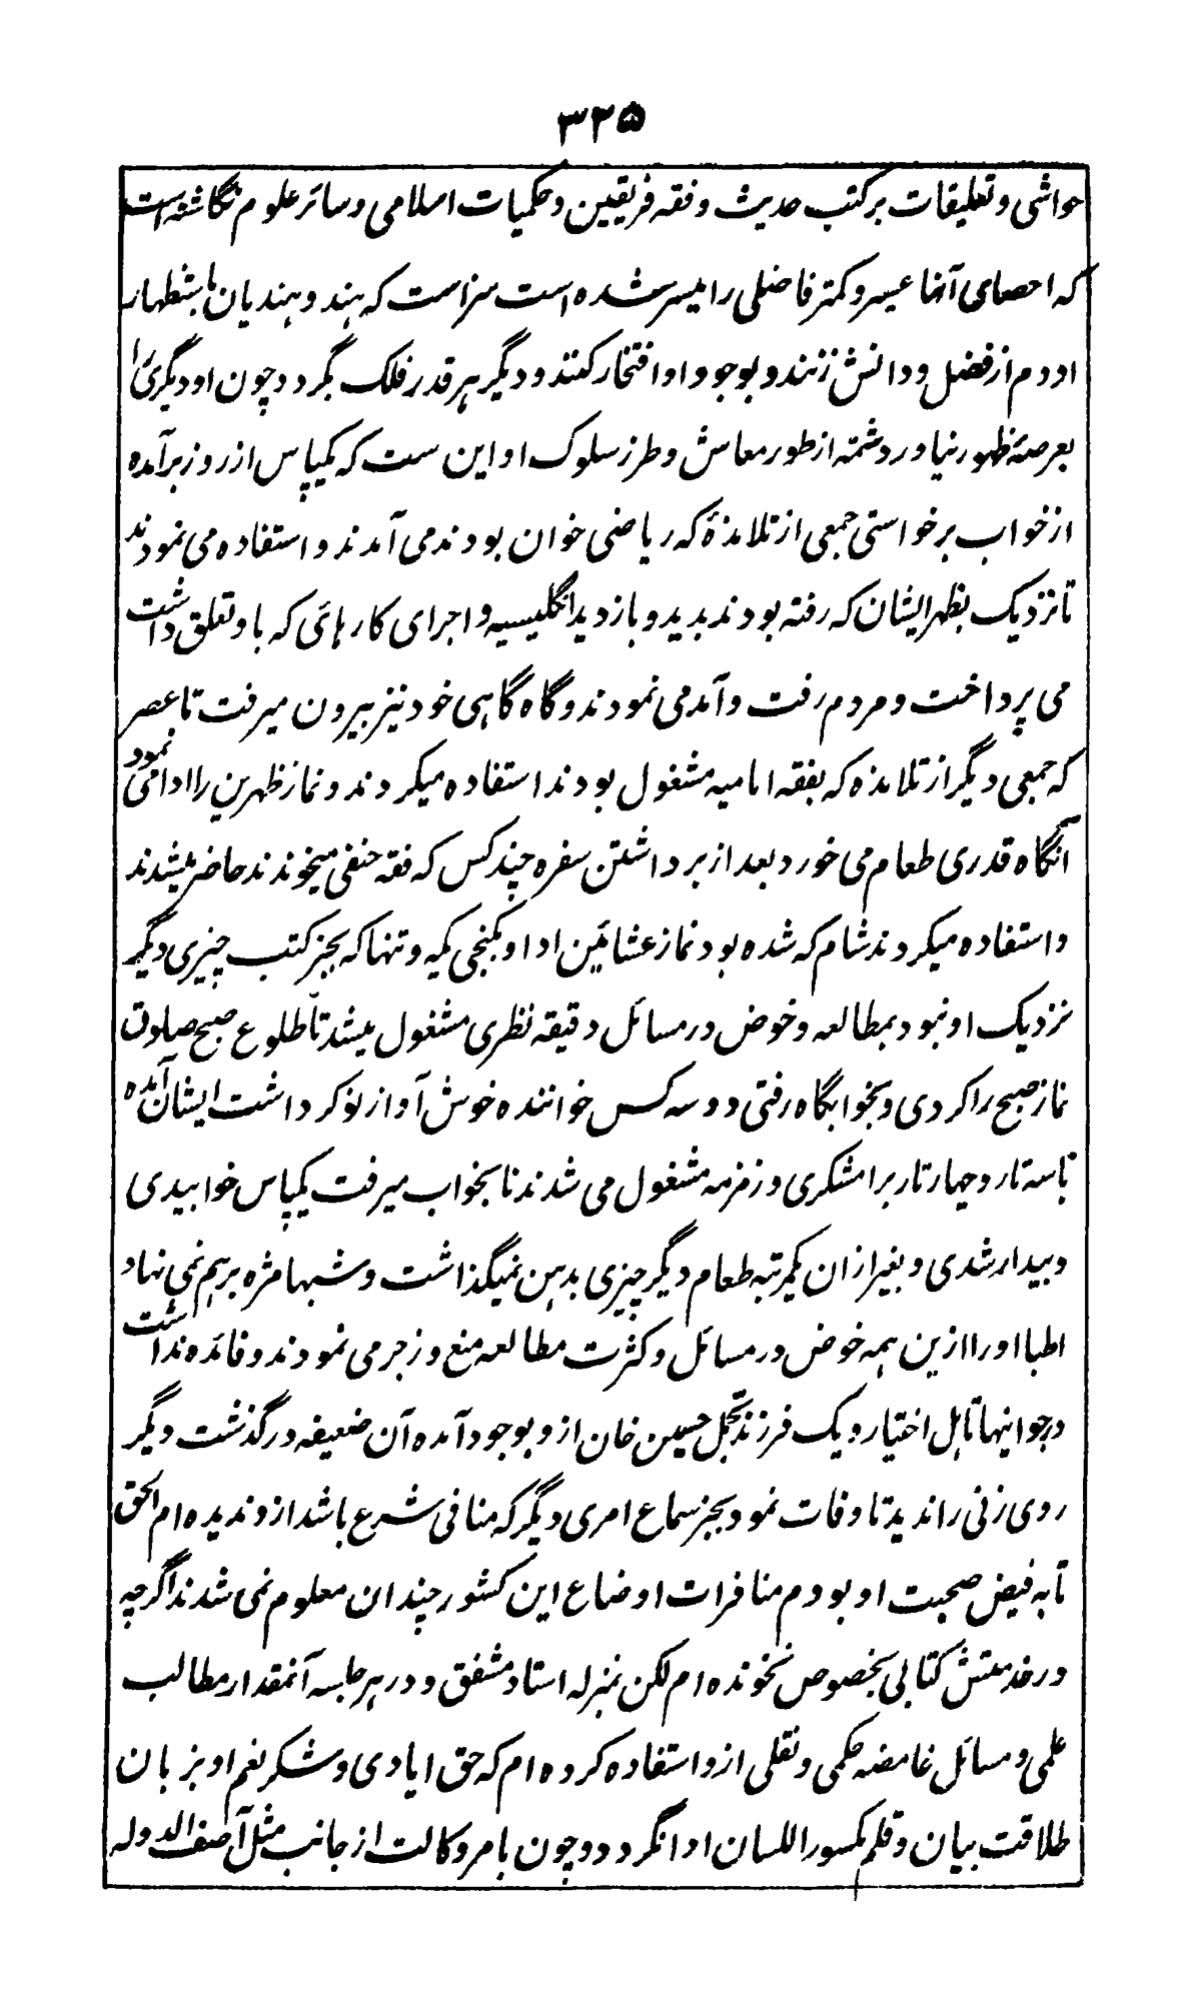 ۳۲۵
حواشی و تعلیقات بر کتب حدیث و فقه فریقین و حکمیات اسلامی و سائر علوم نگاشته است
که احصای آنها عسیر و کمتر فاضلی را میسر شده است سزاست که هند و هندیان باستظهار
او دم از فضل و دانش زنند و بوجود او افتخار کنند و دیگر هر قدر فلک بگردد چون او دیگری را
بعرصهٔ ظهور نیاورد شمهٔ از طور معاش و طرز سلوک او این ست که یکپاس از روز برآمده
از خواب برخواستی جمعی از تلامذهٔ که ریاضی خوان بودند می آمدند و استفاده می نمودند
تا نزدیک بظهر ایشان که رفته بودند بدید و بازدید انگلیسیه و اجرای کارهائی که باو تعلق داشت
می پرداخت و مردم رفت و آمد می نمودند و گاه گاهی خود نیز بیرون میرفت تا عصر
که جمعی دیگر از تلامذه که بفقه امامیه مشغول بودند استفاده میکردند و نماز ظهرین را ادا می نمود
آنگاه قدری طعام می خورد بعد از برداشتن سفره چند کس که فقه حنفی میخوندند حاضر میشدند
و استفاده میکردند شام که شده بود نماز عشائین ادا و بکنجی یکه و تنها که بجز کتب چیزی دیگر
نزدیک او نبود بمطالعه و خوض در مسائل دقیقه نظری مشغول میشد تا طلوع صبح صادق
نماز صبح را کردی و بخوابگاه رفتی دو سه کس خواننده خوش آواز نوکر داشت ایشان آمده
با سه تار و چهار تار برامشگری و زمزمه مشغول می شدند تا بخواب میرفت یکپاس خوابیدی
و بیدار شدی و بغیر ازان یکمرتبه طعام دیگر چیزی بدهن نمیگذاشت و شبها مژه برهم نمی نهاد
اطبا او را ازین همه خوض در مسائل و کثرت مطالعه منع و زجر می نمودند و فائده نداشت
در جوانیها تاهل اختیار و یک فرزند تجمل حسین خان ازو بوجود آمده آن ضعیفه در گذشت دیگر
روی زنی را ندید تا وفات نمود بجز سماع امری دیگر که منافی شرع باشد ازو ندیده ام الحق
تا به فیض صحبت او بودم منافرات اوضاع این کشور چندان معلوم نمی شدند اگرچه
در خدمتش کتابی بخصوص نخونده ام لکن بمنزله استاد مشفق و در هر جلسه آنمقدار مطالب
علمی و مسائل غامضه حکمی و نقلی ازو استفاده کرده ام که حق ایادی و شکر نعم او بزبان
طلاقت بیان و قلم مکسور اللسان ادا نگردد و چون بامر وکالت از جانب مثل آصف الدوله